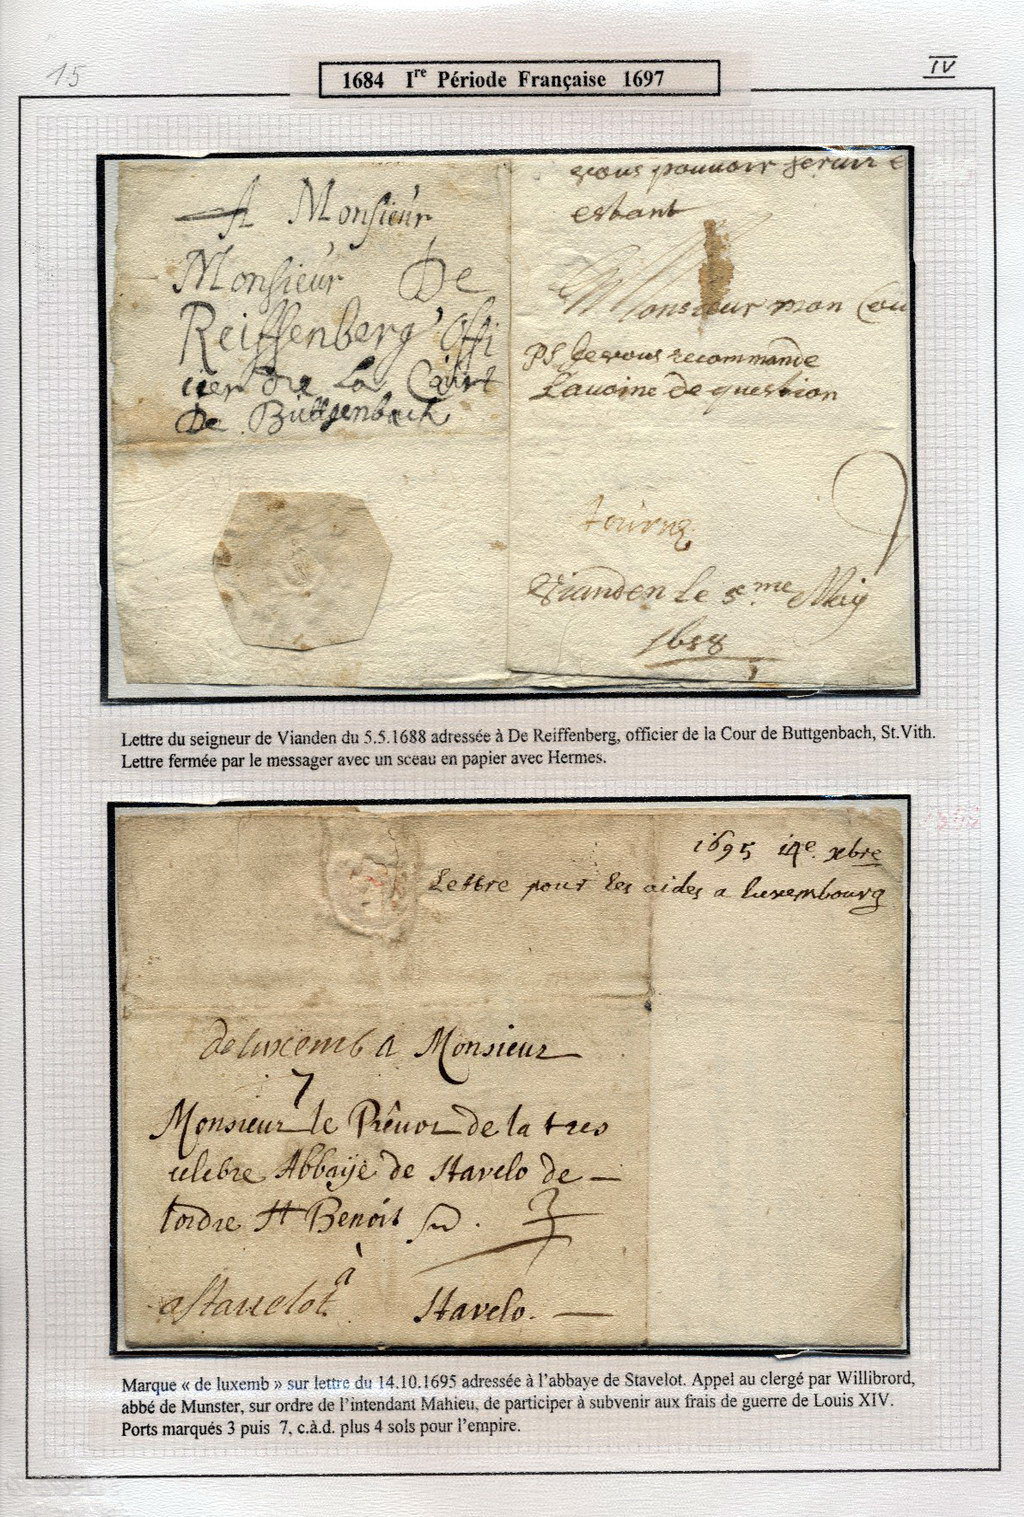 15
1684 Ire Période Française 1697
IV
A Monsieur
Monsieur De
Reiffenberg Offi
cier de La Court
De Büttgenbach
vous pouvoir servir e
estant
Monsieur mon Cou
PS Je vous recommande
Lavoine de question
tourne
Vianden le 5me May
1688
Lettre du seigneur de Vianden du 5.5.1688 adressée à De Reiffenberg, officier de la Cour de Buttgenbach, St.Vith.
Lettre fermée par le messager avec un sceau en papier avec Hermes.
1695 14e. xbre
Lettre pour les aides a luxembourg
de luxemb A Monsieur
7
Monsieur le Prêvot de la tres
celebre Abbaije de Stavelo de
lordre St Benoit
3
a Stavelot à Stavelo.
Marque « de luxemb » sur lettre du 14.10.1695 adressée à l'abbaye de Stavelot. Appel au clergé par Willibrord,
abbé de Munster, sur ordre de l'intendant Mahieu, de participer à subvenir aux frais de guerre de Louis XIV.
Ports marqués 3 puis 7, c.à.d. plus 4 sols pour l'empire.